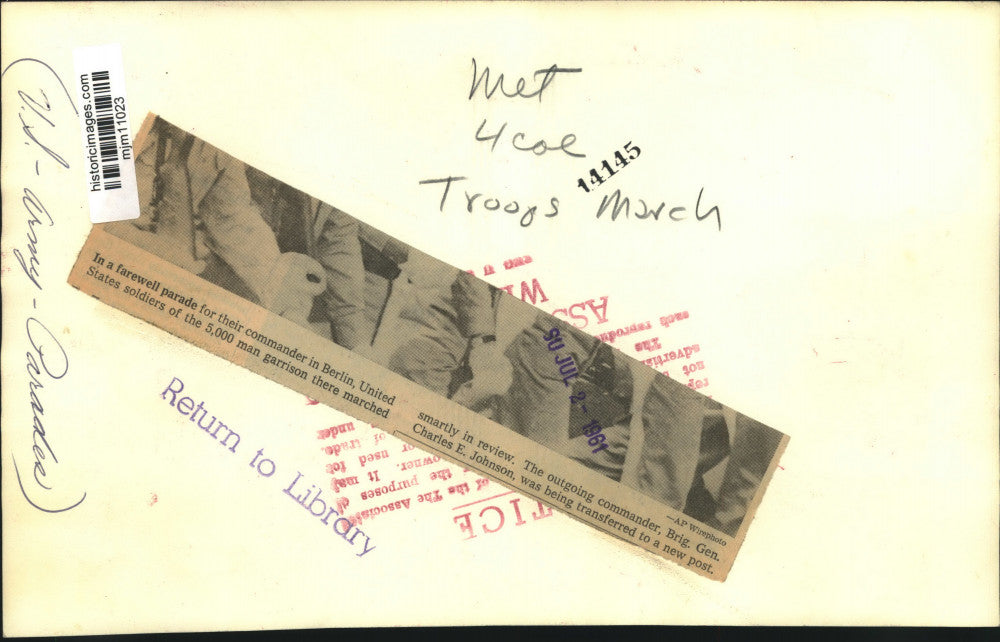 Met
4 coe
14145
Troops March
historicimages.com
mjm11023
(U.S. - Army - Parades)
In a farewell parade for their commander in Berlin, United
States soldiers of the 5,000 man garrison there marched
smartly in review. The outgoing commander, Brig. Gen.
Charles E. Johnson, was being transferred to a new post.
—AP Wirephoto
JUL 2- 1961
Return to Library
each reprodu
advertisi
not
rep
under
of trade.
or used for
owner. It may
the purposes
of the The Associa
TICE